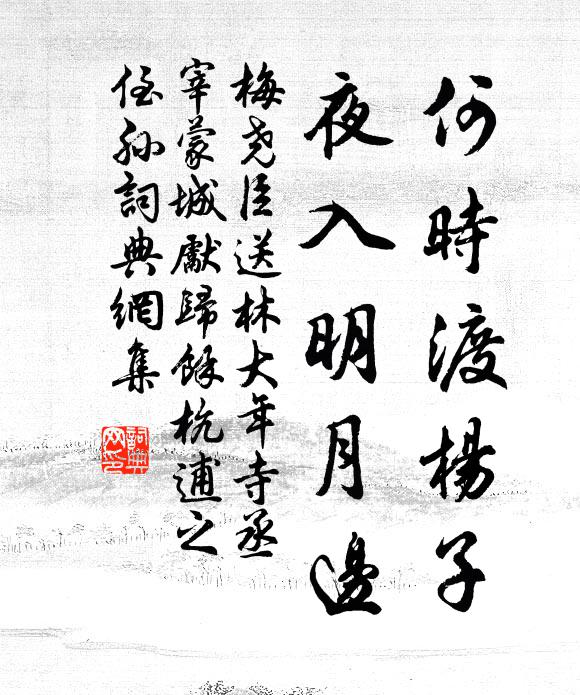 何時渡楊子
夜入明月邊
梅堯臣送林大年寺丞
宰蒙城獻歸餘杭逋之
侄孫詞典網集
詞典
网